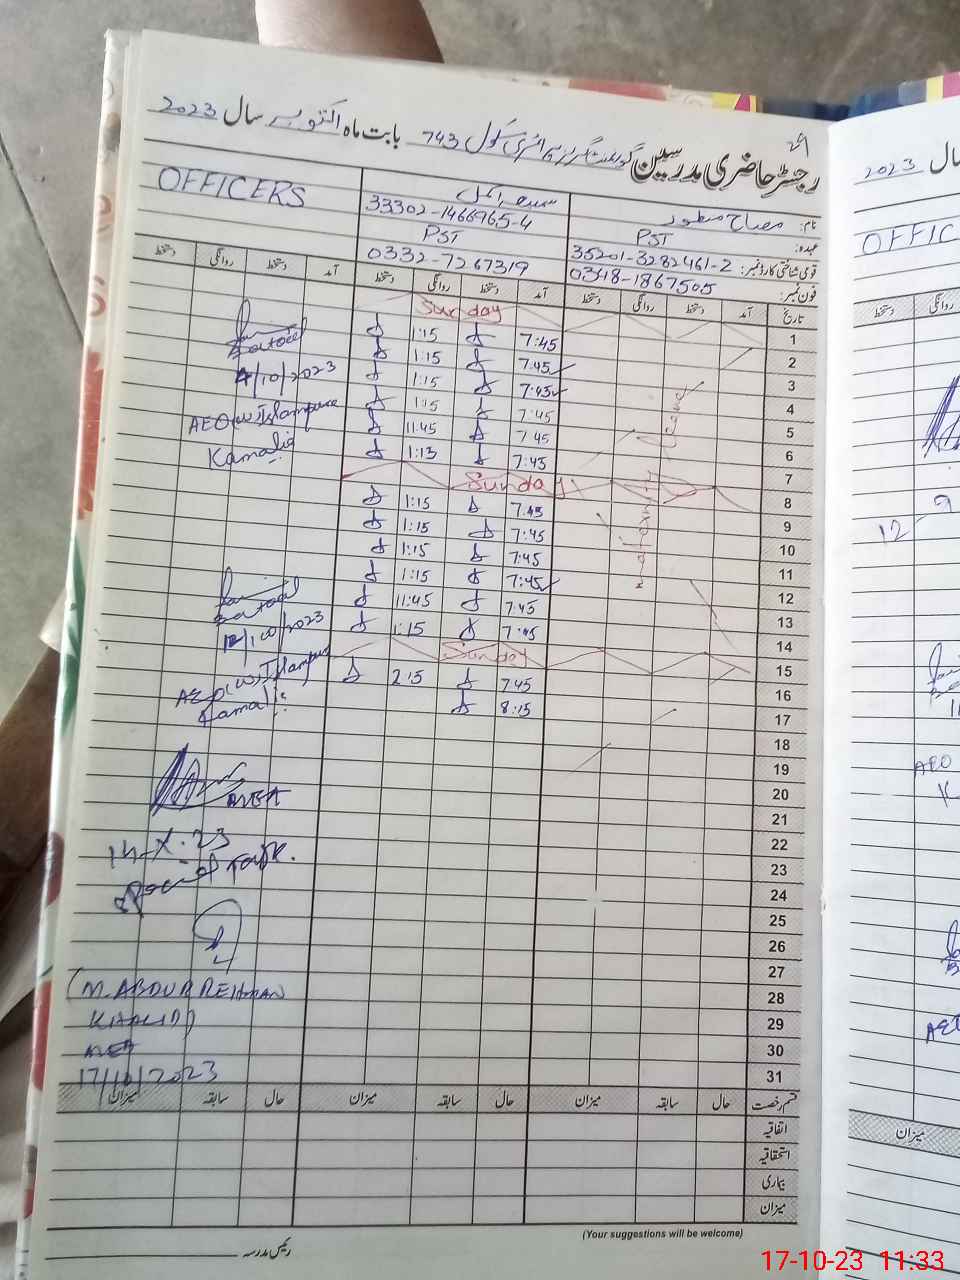 رجسٹر حاضری مدرسین گورنمنٹ گرلز پرائمری سکول 743 بابت ماہ اکتوبر سال 2023
OFFICERS
نام:
33302-1466965-4
عہدہ: PST
PST
قومی شناختی کارڈ نمبر: 35201-3282461-2
0332-7267319
فون نمبر: 0348-1867505
تاریخ آمد دستخط روانگی دستخط آمد دستخط روانگی دستخط آمد دستخط روانگی دستخط
1 Sunday
2 7:45 1:15
3 7:45 1:15
4 7:45 1:15
5 7:45 1:15
6 7:45 11:45
7 7:45 1:15
8 Sunday
9 7:45 1:15
10 7:45 1:15
11 7:45 1:15
12 7:45 1:15
13 7:45 11:45
14 7:45 1:15
15 Sunday
16 7:45 2:15
17 8:15
18
19
20
21
22
23
24
25
26
27
28
29
30
31
Leave
4/10/2023
AEO(W) Islampura
Kamalia
12/10/2023
AEO(W) Islampura
Kamalia
MEA
14-X-23
(M. ABDUR REHMAN
KHALID)
MEA
17/10/2023
قسم رخصت حال سابقہ میزان حال سابقہ میزان حال سابقہ میزان
اتفاقیہ
استحقاقیہ
بیماری
میزان
(Your suggestions will be welcome)
رئیس مدرسہ
2023
OFFIC
روانگی دستخط
9
12
AEO
K
AEO
میزان
17-10-23 11:33